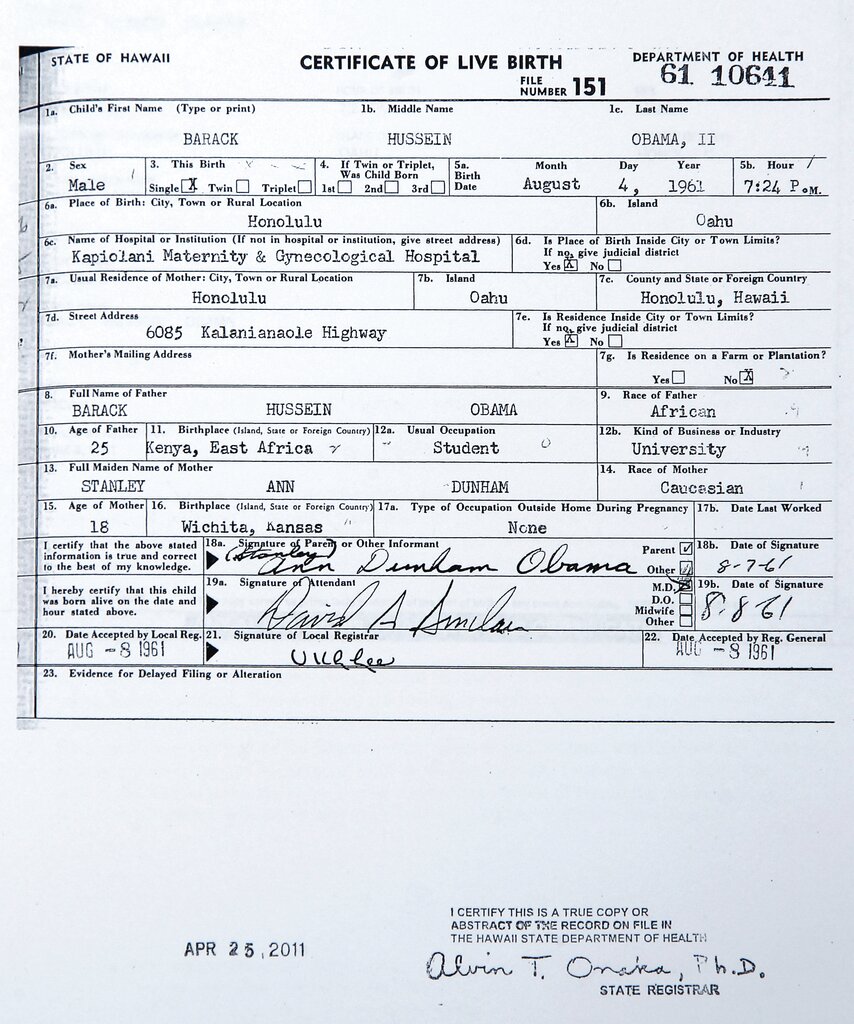 STATE OF HAWAII
CERTIFICATE OF LIVE BIRTH
DEPARTMENT OF HEALTH
FILE NUMBER 151
61 10641
1a. Child's First Name (Type or print) 1b. Middle Name 1c. Last Name
BARACK HUSSEIN OBAMA, II
2. Sex 3. This Birth 4. If Twin or Triplet, Was Child Born 5a. Birth Date Month Day Year 5b. Hour
Male Single X Twin Triplet 1st 2nd 3rd August 4, 1961 7:24 P.M.
6a. Place of Birth: City, Town or Rural Location 6b. Island
Honolulu Oahu
6c. Name of Hospital or Institution (If not in hospital or institution, give street address) 6d. Is Place of Birth Inside City or Town Limits? If no, give judicial district
Kapiolani Maternity & Gynecological Hospital Yes X No
7a. Usual Residence of Mother: City, Town or Rural Location 7b. Island 7c. County and State or Foreign Country
Honolulu Oahu Honolulu, Hawaii
7d. Street Address 7e. Is Residence Inside City or Town Limits? If no, give judicial district
6085 Kalanianaole Highway Yes X No
7f. Mother's Mailing Address 7g. Is Residence on a Farm or Plantation?
Yes No X
8. Full Name of Father 9. Race of Father
BARACK HUSSEIN OBAMA African
10. Age of Father 11. Birthplace (Island, State or Foreign Country) 12a. Usual Occupation 12b. Kind of Business or Industry
25 Kenya, East Africa Student University
13. Full Maiden Name of Mother 14. Race of Mother
STANLEY ANN DUNHAM Caucasian
15. Age of Mother 16. Birthplace (Island, State or Foreign Country) 17a. Type of Occupation Outside Home During Pregnancy 17b. Date Last Worked
18 Wichita, Kansas None
I certify that the above stated information is true and correct to the best of my knowledge.
18a. Signature of Parent or Other Informant Parent Other 18b. Date of Signature
(Stanley) Ann Dunham Obama 8-7-61
I hereby certify that this child was born alive on the date and hour stated above.
19a. Signature of Attendant M.D. X D.O. Midwife Other 19b. Date of Signature
David A Sinclair 8-8-61
20. Date Accepted by Local Reg. 21. Signature of Local Registrar 22. Date Accepted by Reg. General
AUG -8 1961 AUG -8 1961
23. Evidence for Delayed Filing or Alteration
APR 25, 2011
I CERTIFY THIS IS A TRUE COPY OR
ABSTRACT OF THE RECORD ON FILE IN
THE HAWAII STATE DEPARTMENT OF HEALTH
Alvin T. Onaka, Ph.D.
STATE REGISTRAR